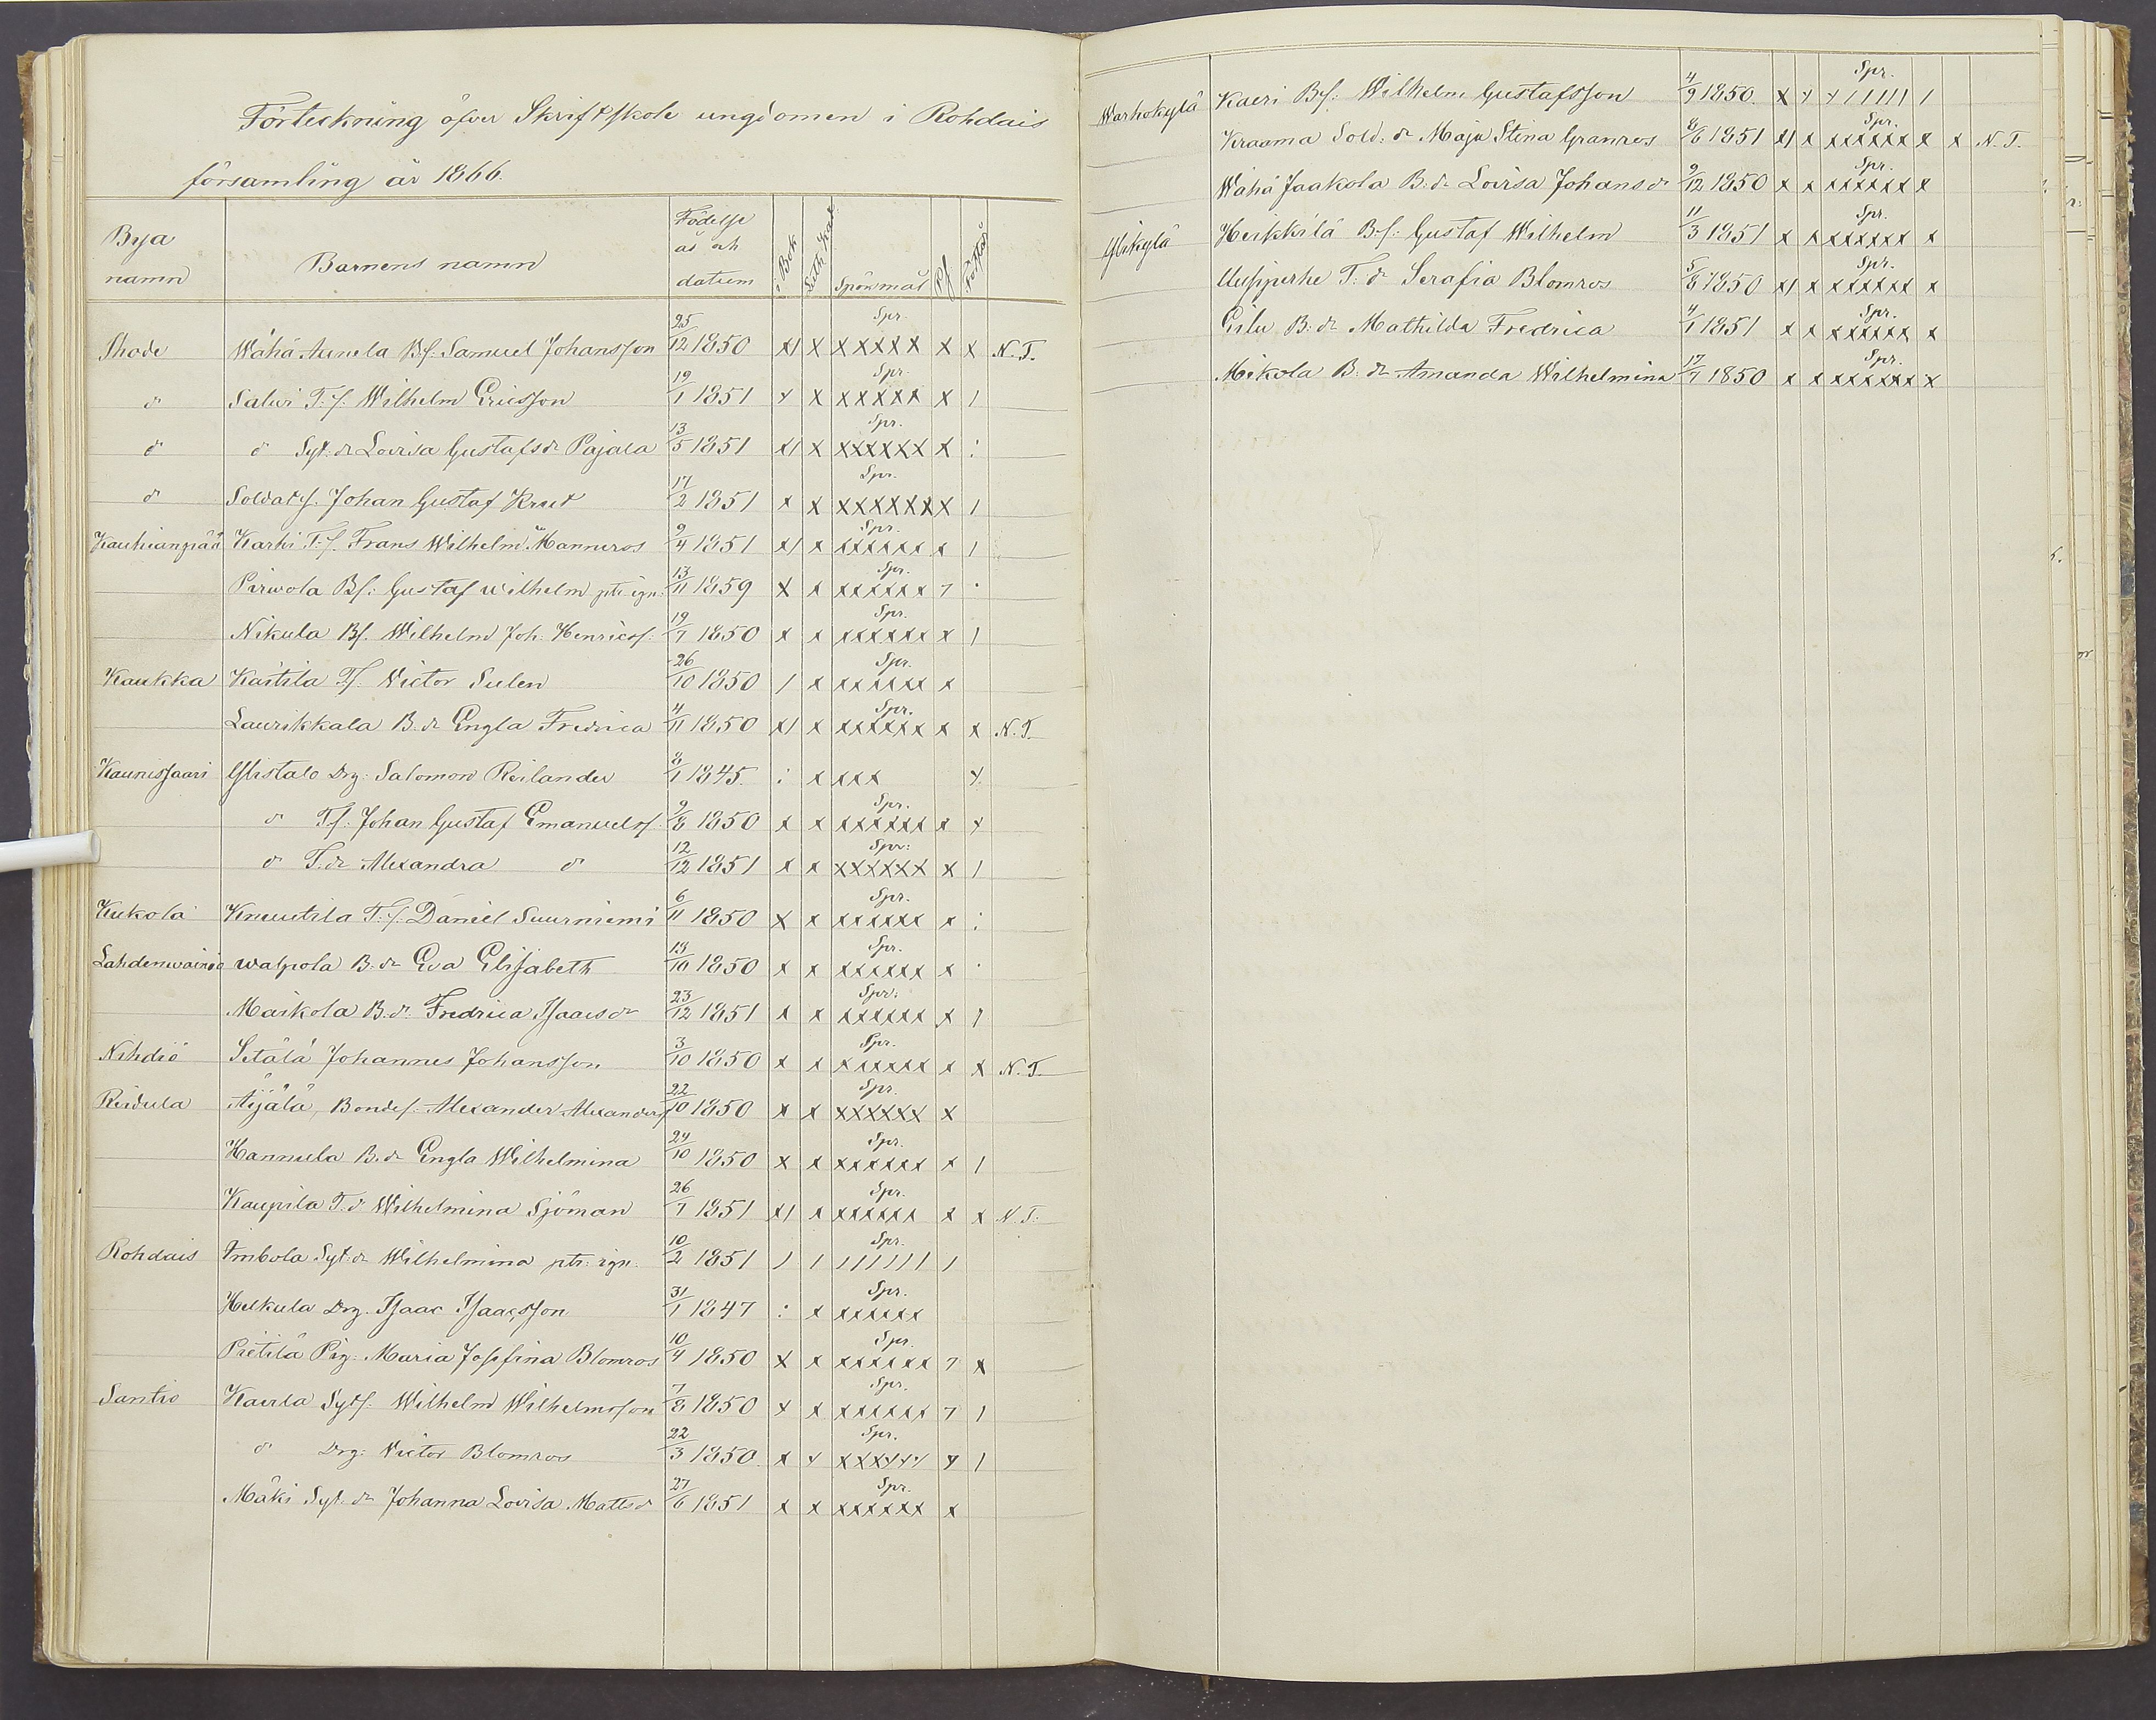 Förteckning öfver Skriftskole ungdomen i Rohdais
församling år 1866.
Bya namn Barnens namn Födelse år och datum i Bok Luth Kat Spörsmål Pf Förstår
Wähä Aunela Bf. Samuel Johansson 25/12 1850 x/ x Spr. xxxxx x x N.T.
d:o Salwi T.f. Wilhelm Ericsson 19/1 1851 x x Spr. xxxxx x /
d:o d:o Syt. dr Lovisa Gustafsdr Pajala 13/5 1851 x/ x Spr. xxxxxx x :
d:o Soldatf. Johan Gustaf Krut 17/2 1851 x x Spr. xxxxxxx /
Kauhianpää Karhi T.f. Frans Wilhelm Manneros 9/4 1851 x/ x Spr. xxxxxx x /
Pirwola Bf: Gustaf Wilhelm ptr. ign: 13/11 1859 x x Spr. xxxxxx 7 .
Nikula Bf. Wilhelm Joh. Henricsf. 19/7 1850 x x Spr. xxxxxx x /
Kaukka Kästilä Tf. Victor Sulen 26/10 1850 / x Spr. xxxxxx x
Laurikkala B. dr Engla Fredrica 4/11 1850 x/ x Spr. xxxxxx x x N.T.
Kaunissaari Ylistalo Drg. Salomon Reilander 8/1 1845. : x xxx x
d:o Tf. Johan Gustaf Emanuelsf. 9/8 1850 x x Spr. xxxxxx x x
d:o T. dr Alexandra d:o 12/12 1851 x x Spr: xxxxxx x /
Kukola Knuutila T.f. Daniel Suurniemi 6/11 1850 x x Spr. xxxxxx x :
Lahdenwainio Walpola B. dr Eva Elisabeth 13/10 1850 x x Spr. xxxxxx x .
Maikola B. dr Fredrica Isaacsdr 23/12 1851 x x Spr: xxxxxx x /
Nihdiö Setälä Johannes Johansson 3/10 1850 x x Spr. xxxxxx x x N.T.
Reidula Äijälä, Bondef. Alexander Alexandersf 22/10 1850 x x Spr. xxxxxx x
Hannula B. dr Engla Wilhelmina 24/10 1850 x x Spr. xxxxxx x /
Kaupila T. dr Wilhelmina Sjöman 26/7 1851 x/ x Spr. xxxxxx x x N.T.
Rohdais Imbola Syt. dr Wilhelmina ptr. ign. 10/2 1851 / / Spr. ////// /
Heikula Drg. Isaac Isaacsson 31/1 1847 : x Spr. xxxxxx
Pietilä Pig. Maria Josefina Blomros 10/4 1850 x x Spr. xxxxxx 7 x
Santio Kaerla Sytf. Wilhelm Wilhelmsson 7/8 1850 x x Spr. xxxxxx 7 /
d:o Drg. Victor Blomros 22/3 1850. x x Spr. xxxxxx x /
Mäki Syt. dr Johanna Lovisa Mattsdr 27/6 1851 x x Spr. xxxxxx x
Warhokylä Kaeri Bf: Wilhelm Gustafsson 4/9 1850. x x Spr. x///// /
Kraama Sold: dr Maja Stina Granros 8/6 1851 x/ x Spr. xxxxxx x x N.T.
Wähä Jaakola B. dr Lovisa Johansdr 9/12 1850 x x Spr. xxxxxx x
Ylikylä Heikkilä B.f: Gustaf Wilhelm 11/3 1851 x x Spr. xxxxxx x
T. dr Serafia Blomros 5/8 1850 x/ x Spr. xxxxxx x
B. dr Mathilda Fredrica 4/1 1851 x x Spr. xxxxxx x
Mikola B. dr Amanda Wilhelmina 17/7 1850 x x Spr. xxxxxx x